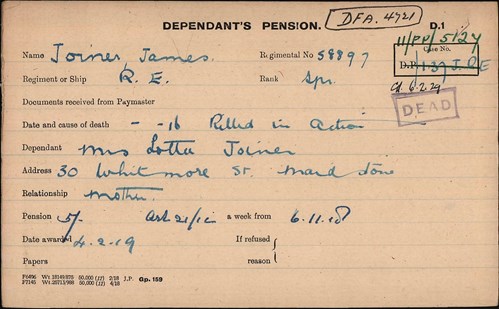 DEPENDANT'S PENSION.
DFA. 4721
D.1
11/PN/5127
Name Joiner, James.
Regimental No 58897
Case No.
D.P.
Regiment or Ship R. E.
Rank Spr.
6.2.29
Documents received from Paymaster
DEAD
Date and cause of death - -16 Killed in Action
Dependant Mrs Lotta Joiner
Address 30 Whitmore St. Maidstone
Relationship Mother
Pension 5/- Art 21/1c a week from 6.11.18
Date awarded 4.2.19
If refused
Papers
reason
P6496 Wt. 18149/875 50,000 (17) 2/18 J.P. Gp. 159
P7145 Wt. 25713/988 50,000 (17) 4/18